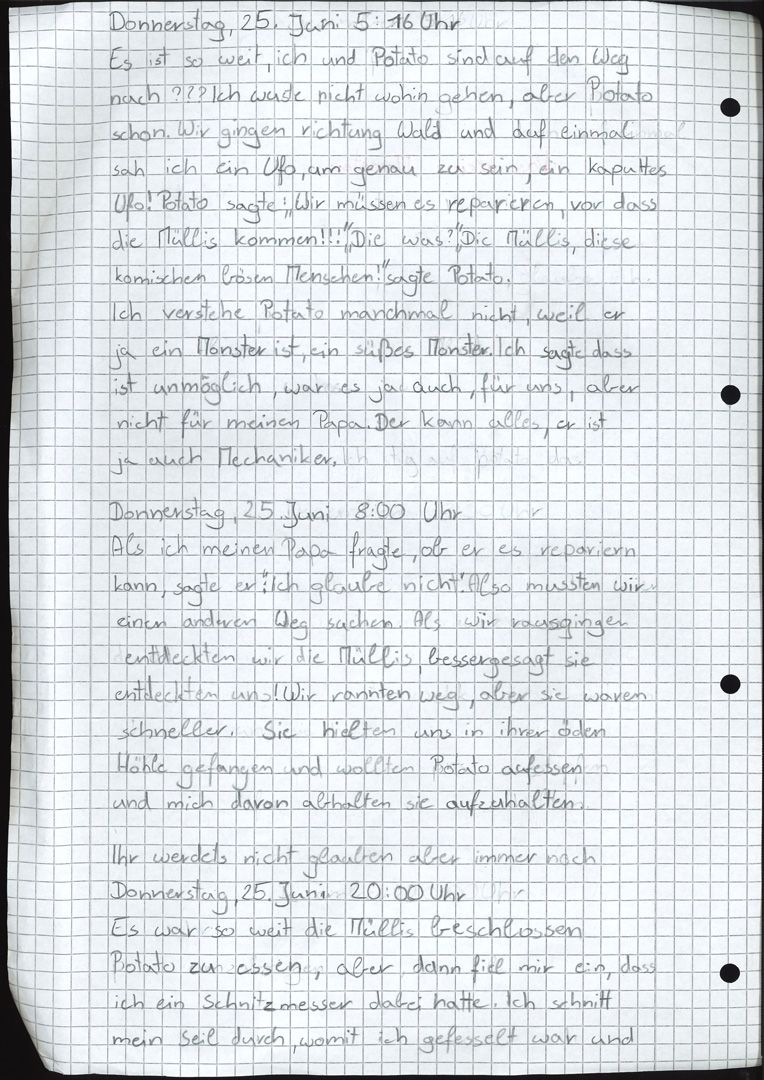 Donnerstag, 25. Juni 5:16 Uhr
Es ist so weit, ich und Potato sind auf den Weg
nach ??? Ich wuste nicht wohin gehen, aber Potato
schon. Wir gingen richtung Wald und auf einmal
sah ich ein Ufo, um genau zu sein, ein kaputtes
Ufo! Potato sagte: "Wir müssen es reparieren, vor dass
die Müllis kommen!!!" "Die was?" "Die Müllis, diese
komischen bösen Menschen!" sagte Potato.
Ich verstehe Potato manchmal nicht, weil er
ja ein Monster ist, ein süßes Monster. Ich sagte dass
ist unmöglich, war es ja auch, für uns, aber
nicht für meinen Papa. Der kann alles, er ist
ja auch Mechaniker.
Donnerstag, 25. Juni 8:00 Uhr
Als ich meinen Papa fragte, ob er es repariern
kann, sagte er: "Ich glaube nicht". Also mussten wir
einen anderen Weg suchen. Als wir rausgingen
entdeckten wir die Müllis, bessergesagt sie
entdeckten uns! Wir rannten weg, aber sie waren
schneller. Sie hielten uns in ihrer öden
Höhle gefangen und wollten Potato aufessen
und mich davon abhalten sie aufzuhalten.
Ihr werdets nicht glauben aber immer noch
Donnerstag, 25. Juni 20:00 Uhr
Es war so weit die Müllis beschlossen
Potato zu essen, aber dann fiel mir ein, dass
ich ein Schnitzmesser dabei hatte. Ich schnitt
mein Seil durch, womit ich gefesselt war und